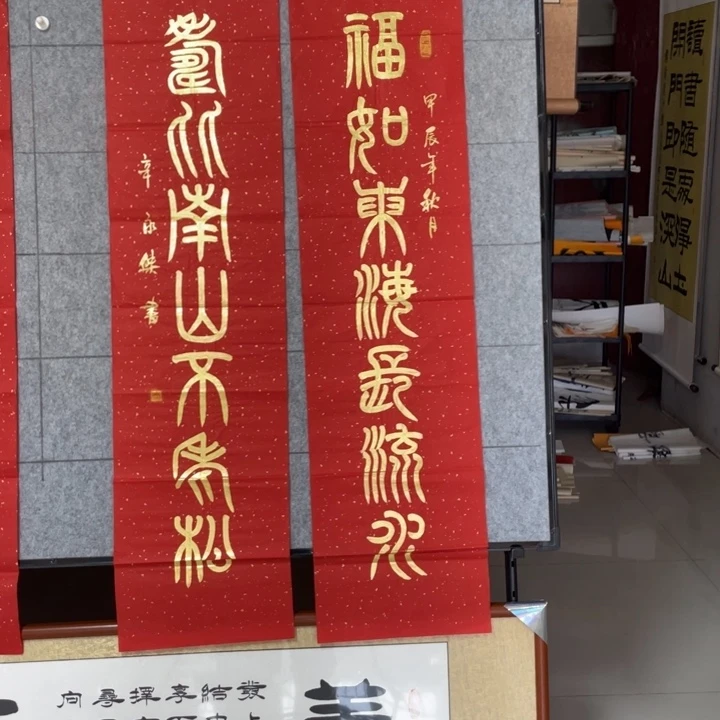 讀書隨處淨土
閉門即是深山
甲辰年秋月
福如東海長流水
壽比南山不老松
辛永傑書
發
結
擇
尋
向